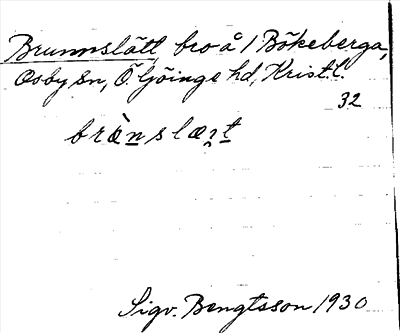 Brunnslätt, bro å 1 Bökeberga,
Osby sn, Ö Göinge hd, Krist. l.
32
brǜnslæt
Sigv. Bengtsson 1930